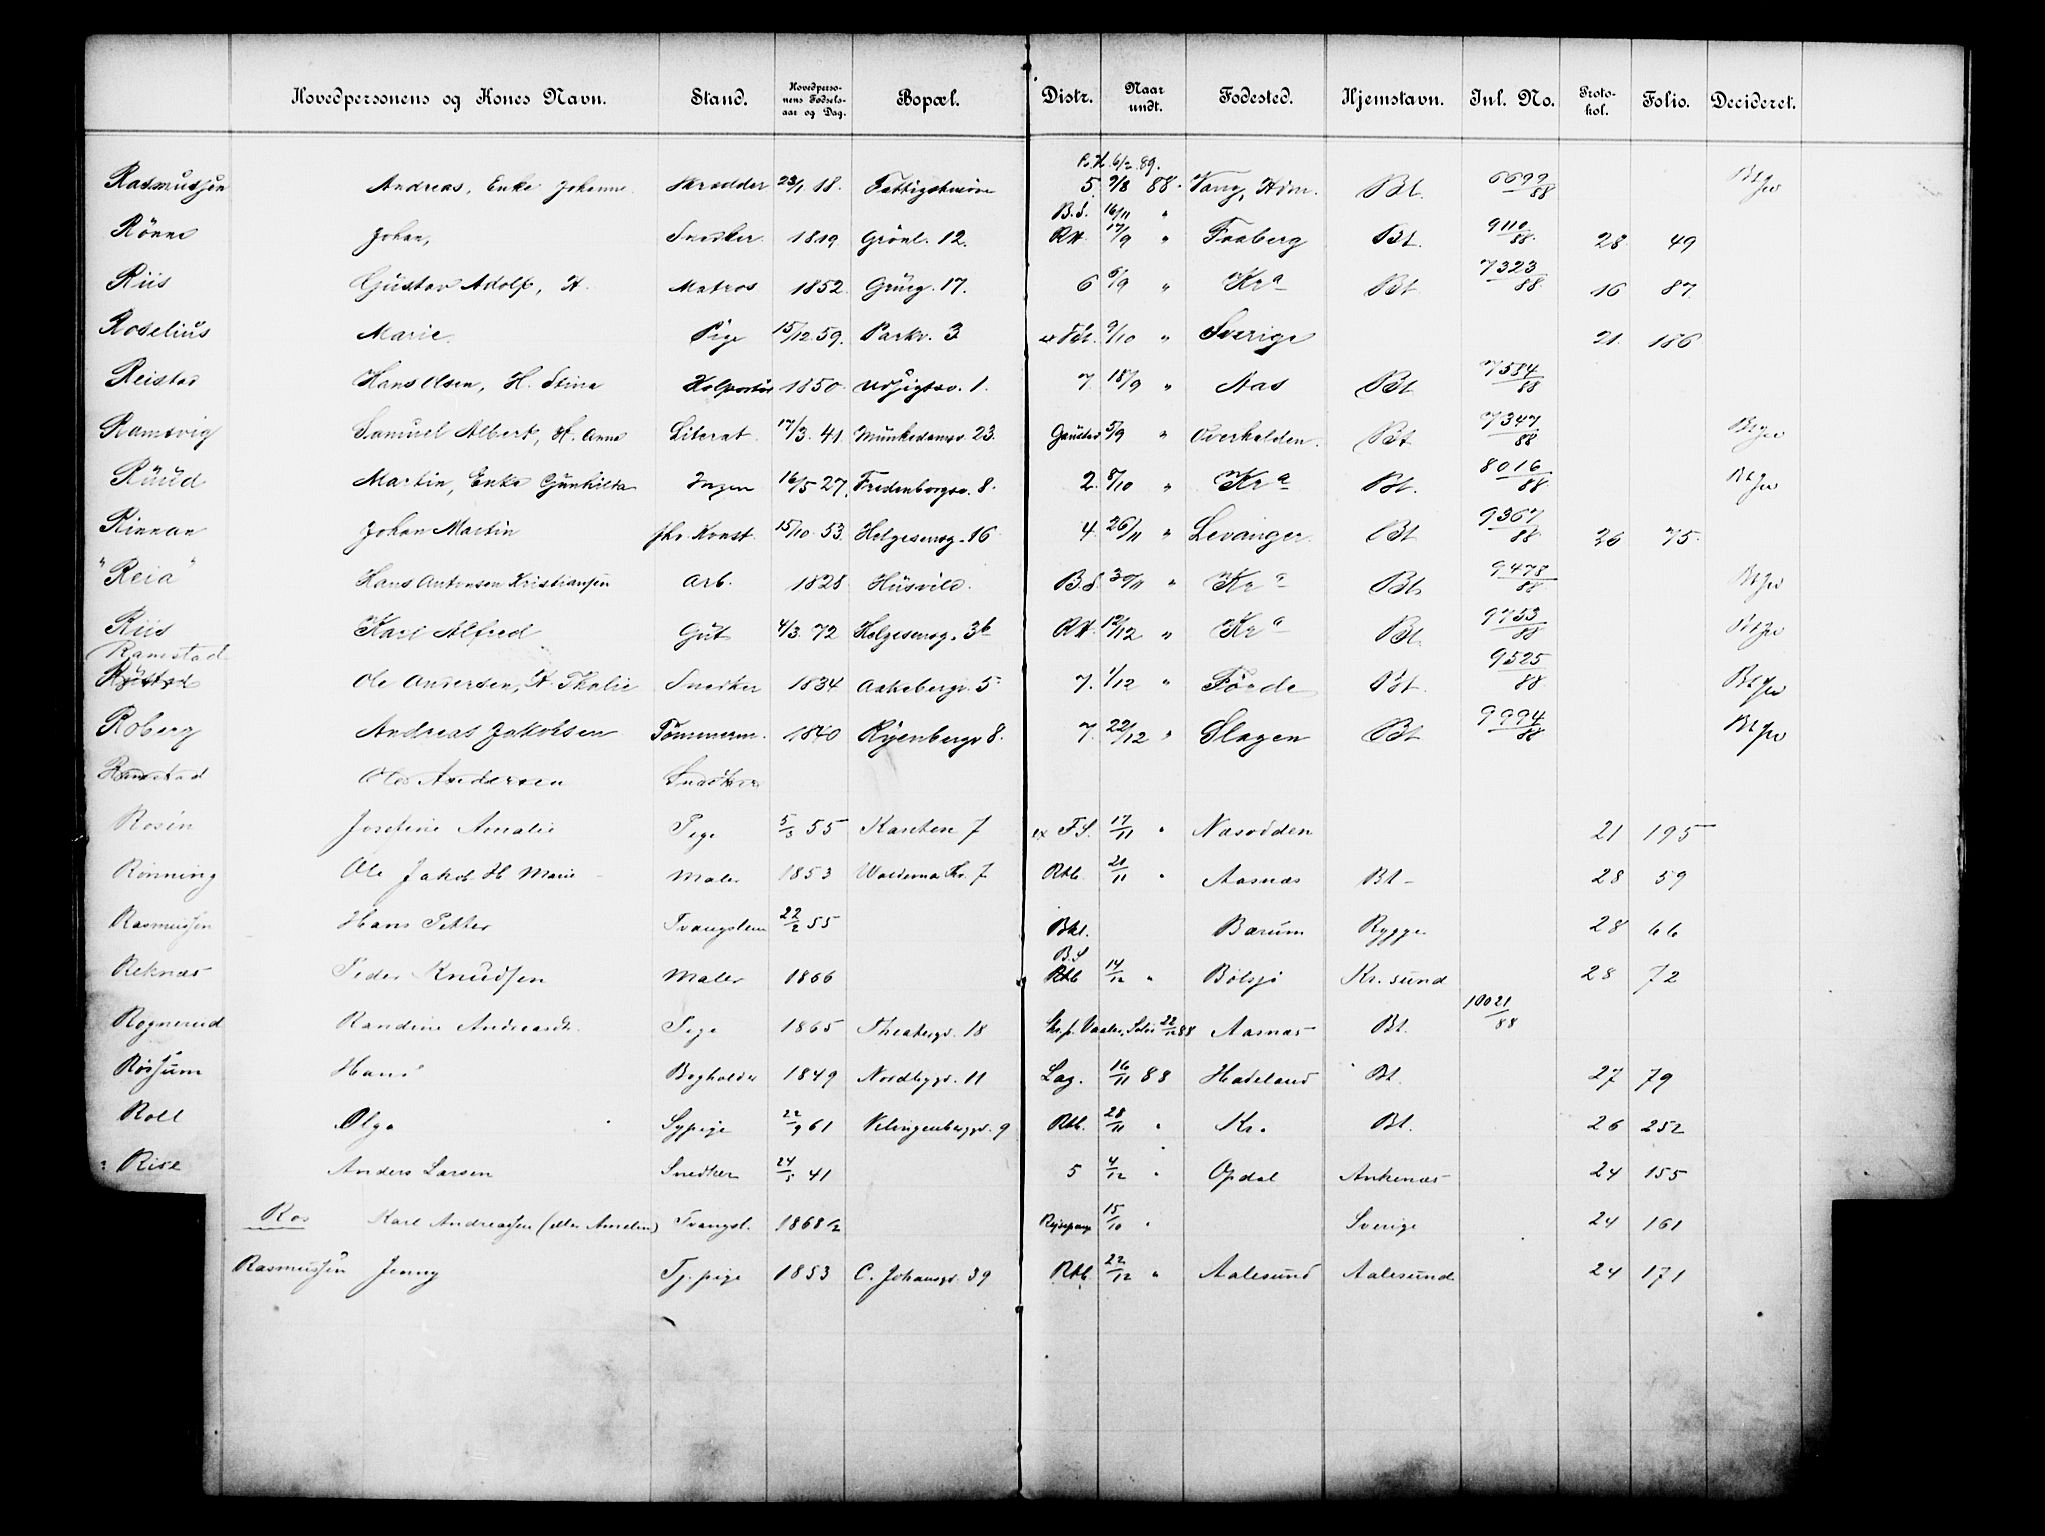 Hovedpersonens og Kones Navn. Stand. Hovedperso-nens Fødsels-aar og Dag. Bopæl. Distr. Naar undt. Fødested. Hjemstavn. Inl. No. Proto-kol. Folio. Decideret.
Rasmussen Andreas, Enke Johanne Skrædder 23/1 18. 5. 9/8 88. Vang, Hdm. Bt. 6699/88
Rönne Johan, Snedker 1819 Grönl. 12. B.S. 16/11 " RH 17/9 " Faaberg Bt. 9110/88 28 49
Riis Gustav Adolf, H. Matros 1852 Grürg. 17. 6 6/9 " Kra Bt 7323/88 16 87
Roselius Marie. Pige 15/12 59. Parkv. 3 9/10 " Sverige 21 186
Reistad Hans Olsen, H. Stina 1850 Udsigtsv. 1. 7. 18/9 " Næs Bt 7584/88
Ramsvig Samuel Albert, H. Anna Literat. 17/3 41. Munkedamsv. 23. Gaustad 5/9 " Overhalden. Bt 7347/88
Rüüd Martin, Enke Gunhilda Ingen 16/5 27. Fredenborgsv. 8. 2. 8/10 " Kra Bt. 8016/88
Rinnan Johan Martin fhv. Konst. 15/10 53. Helgesensg. 16 4. 26/11 " Levanger. Bt 9367/88 26 75.
"Reia" Hans Antonsen Kristiansen Arb. 1828 Husvild. B.S. 30/11 " Kra Bt. 9478/88
Riis Karl Alfred Gut 4/3 72 Helgesensg. 3b RH. 12/12 " Kra Bt. 9753/88
Ramstad
Ole Andersen, H. Thalie Snedker 1834 Aakebergv. 5 7. 1/12 " Förde Bt. 9525/88
Roberg Andreas Jakobsen Tømmerm. 1840 Ryenbergv 8. 7. 22/12 " Slagen Bt 9994/88
Ramstad Ole Andersen Snedker
Rosén Josefine Amalie Pige 5/3 55 Kanten 7 ex F.S. 17/11 " Næsodden 21 195
Rönning Ole Jakob H Marie Maler 1853 7 Rtb. 21/11 " Aasnæs Bt - 28 59
Rasmussen Hans Petter Tvangslem 22/2 55 Bkl. Bærum Rygge 28 66
Reknæs Peder Knudsen Maler 1866 B.S Rtb 14/12 " Bolsjö Kr. sund 28 72
Rognerud Randine Andreasdt. Pige 1865 Theatergd. 18 22/12 88 Aasnæs Bt. 10021/88
Røssum Hans Bogholder 1849 Nordbygd. 11 Lag. 16/11 88 Hadeland Bt. 27 79
Roll Olga Sypige 22/9 61 9 Rtb. 28/11 " Kr. Bt. 26 252
Rise Anders Larsen Snedker 24/5 41 5 4/12 " Opdal Ankenæs 24 155
Ros Karl Andreassen (eller Amelin) Tvangsl. 1868 15/10 " Sverige 24 161
Rasmussen Jenny Tj. pige 1853 C. Johansgd. 39 Rtb. 22/12 " Aalesund Aalesund 24 171